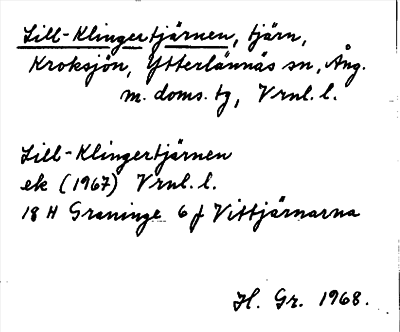 Lill-Klingertjärnen, tjärn,
Kroksjön, Ytterlännäs sn, Ång.
m. doms. tg, Vrnl. l.
Lill-Klingertjärnen
ek (1967) Vrnl. l.
18 H Graninge 6 f Vittjärnarna
H. Gr. 1968.